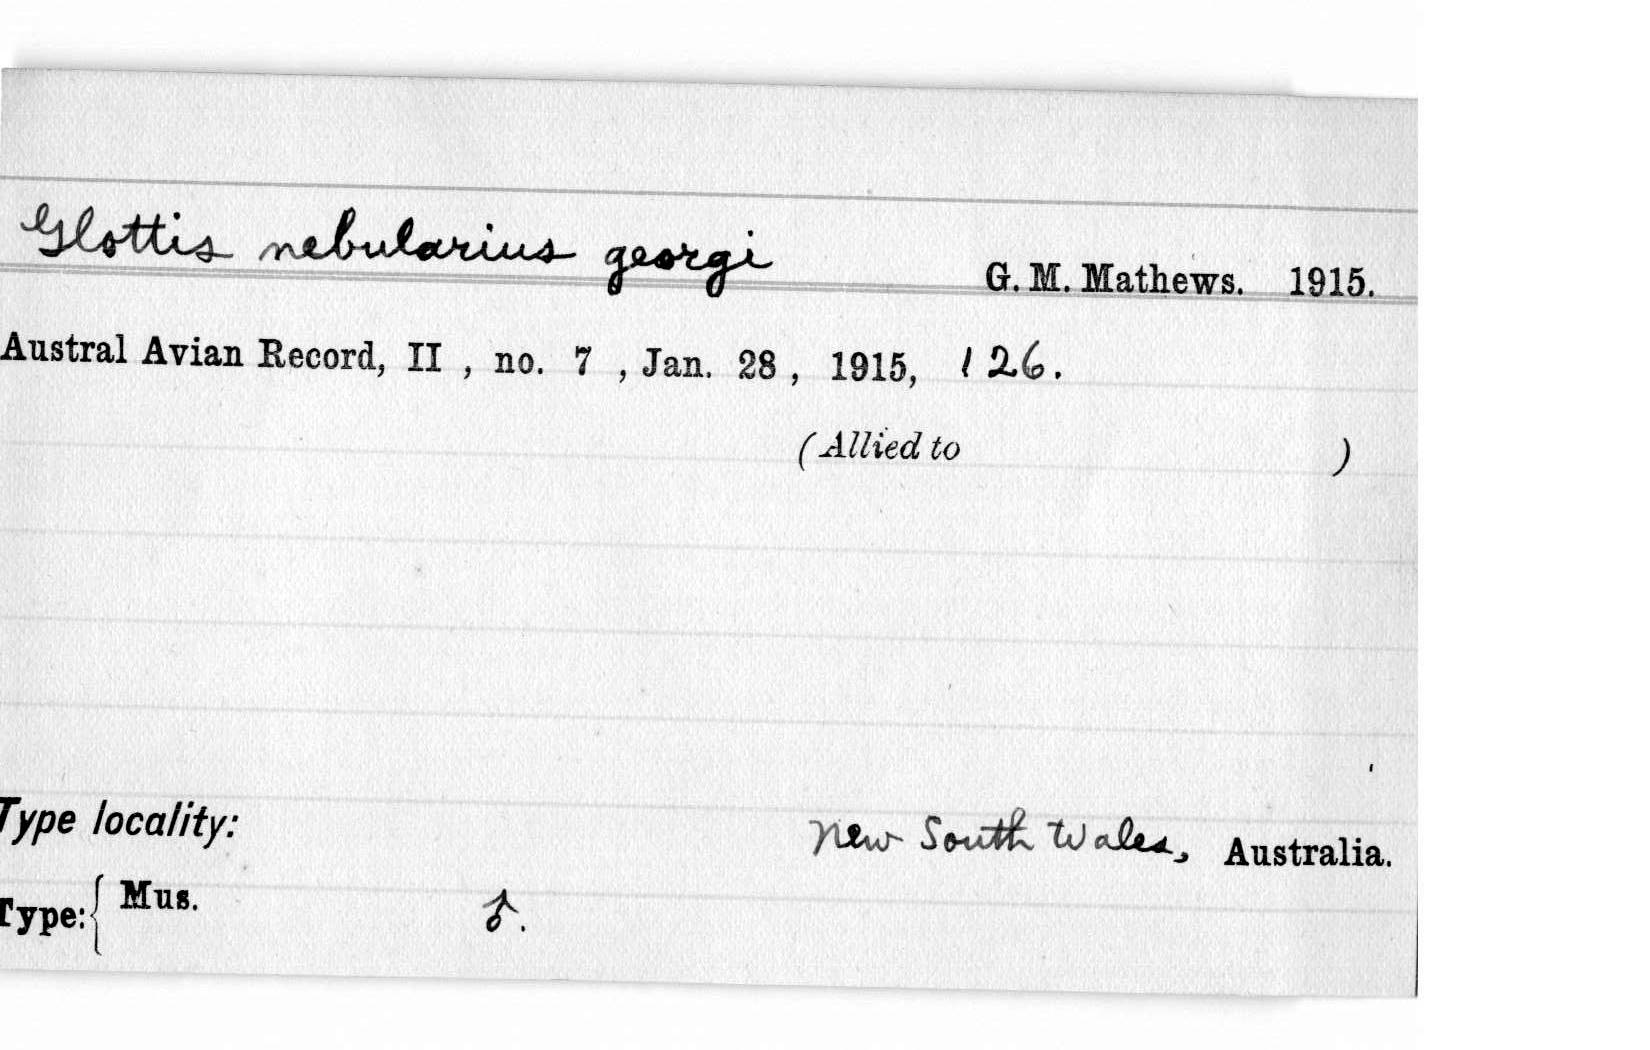 Glottis nebularius georgi
G. M. Mathews. 1915.
Austral Avian Record, II , no. 7 , Jan. 28 , 1915, 126.
(Allied to )
Type locality: New South Wales, Australia.
Type: { Mus. ♂.